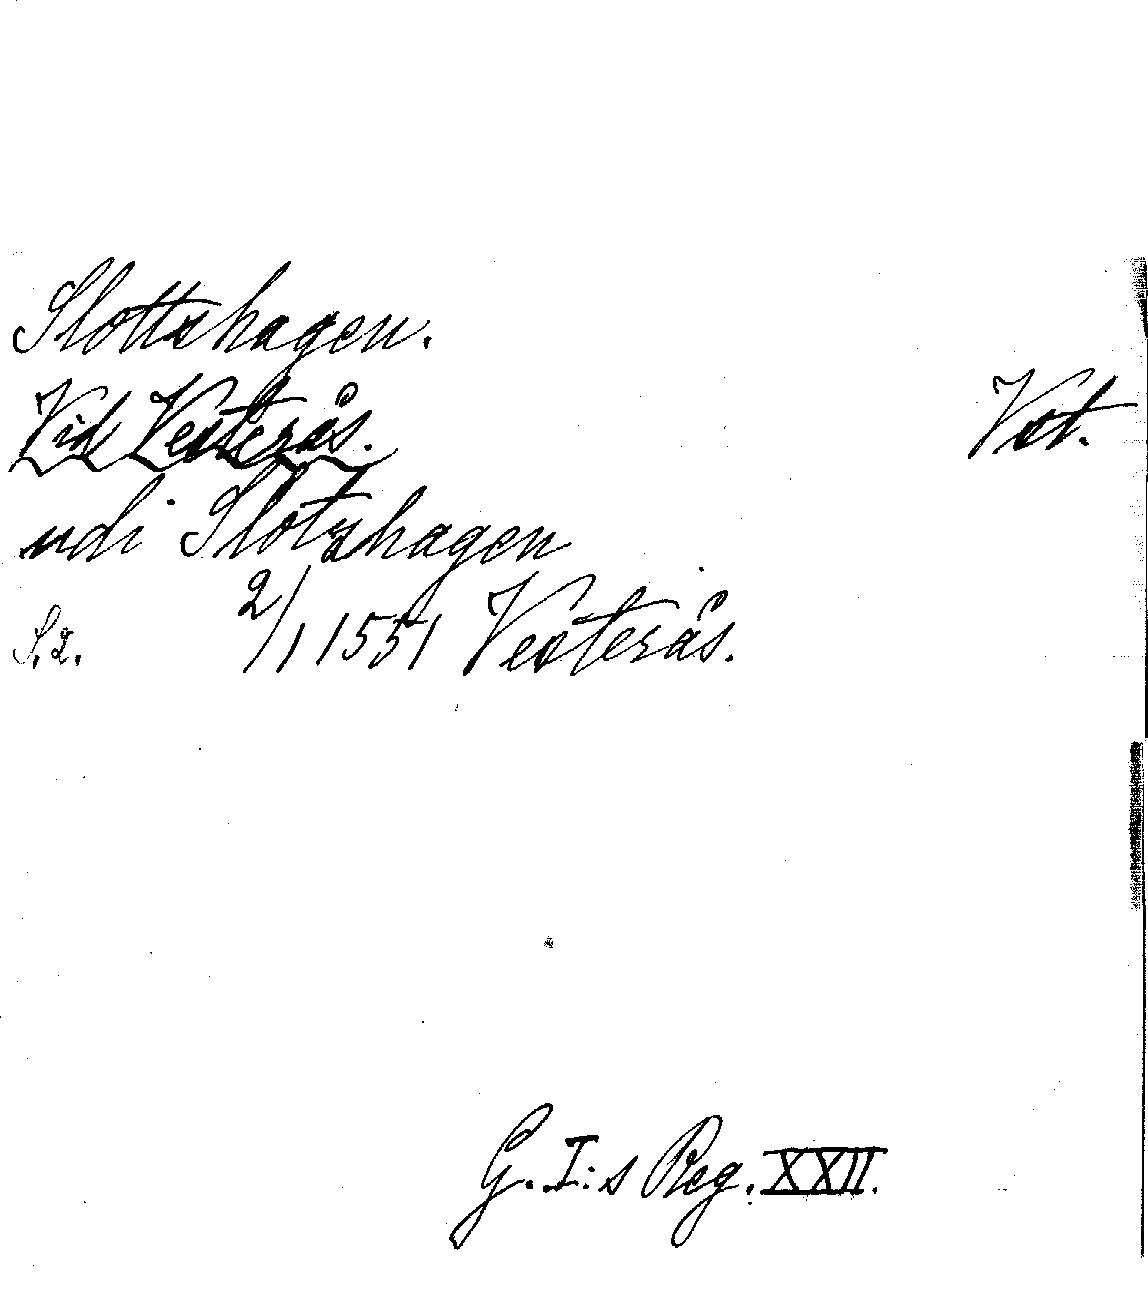 Slottshagen.
Vid Vesterås. Vst.
udi Slotzhagen
S. 2. 2/1 1551 Vesterås.
G. I:s Reg. XXII.